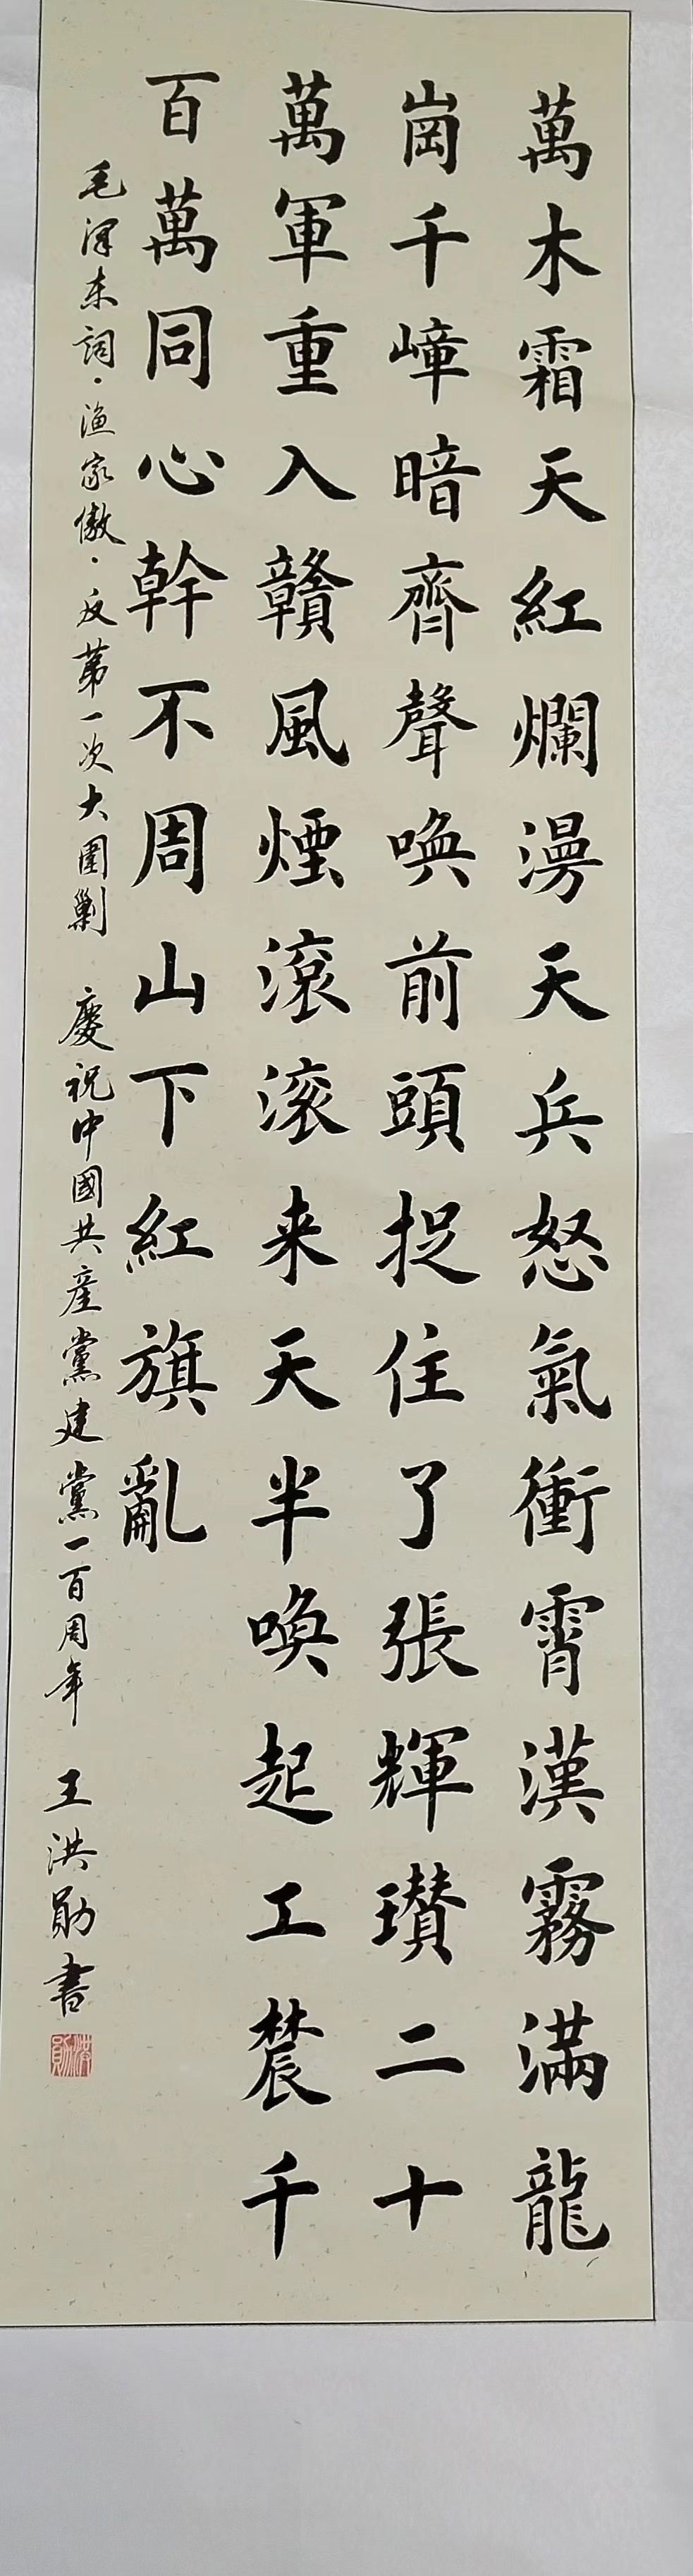 萬木霜天紅爛漫天兵怒氣衝霄漢霧滿龍
崗千嶂暗齊聲喚前頭捉住了張輝瓚二十
萬軍重入贛風煙滾滾来天半喚起工農千
百萬同心幹不周山下紅旗亂
毛澤东詞·渔家傲·反第一次大圍剿 慶祝中國共產黨建黨一百周年 王洪勋書
洪勛